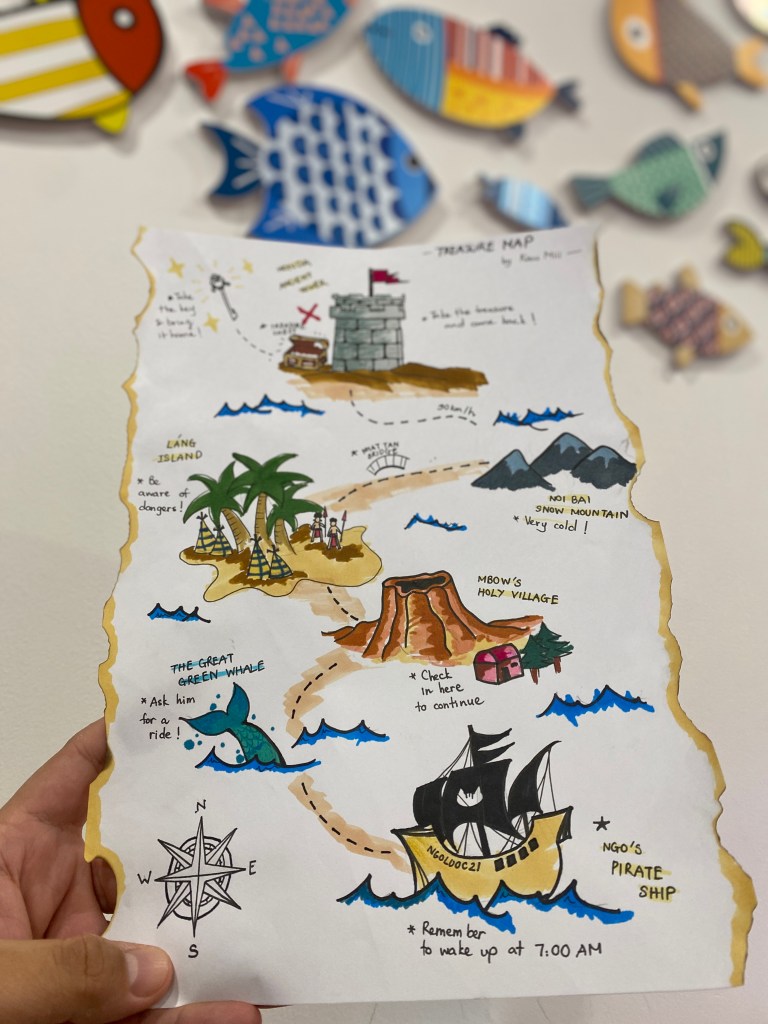 - TREASURE MAP -
by
* Take
the key
& bring
it home!
ANCIENT
TOWER
* TREASURE
CHEST
* Take the treasure
and come back!
30km/h
LÁNG
ISLAND
* Be
aware of
dangers!
* NHAT TAN
BRIDGE
NOI BAI
SNOW MOUNTAIN
* Very cold!
MBOW'S
HOLY VILLAGE
* Check
in here
to continue
THE GREAT
GREEN WHALE
* Ask him
for a
ride!
N
W E
S
NGOLDOC21
NGO'S
PIRATE
SHIP
* Remember
to wake up at 7:00 AM